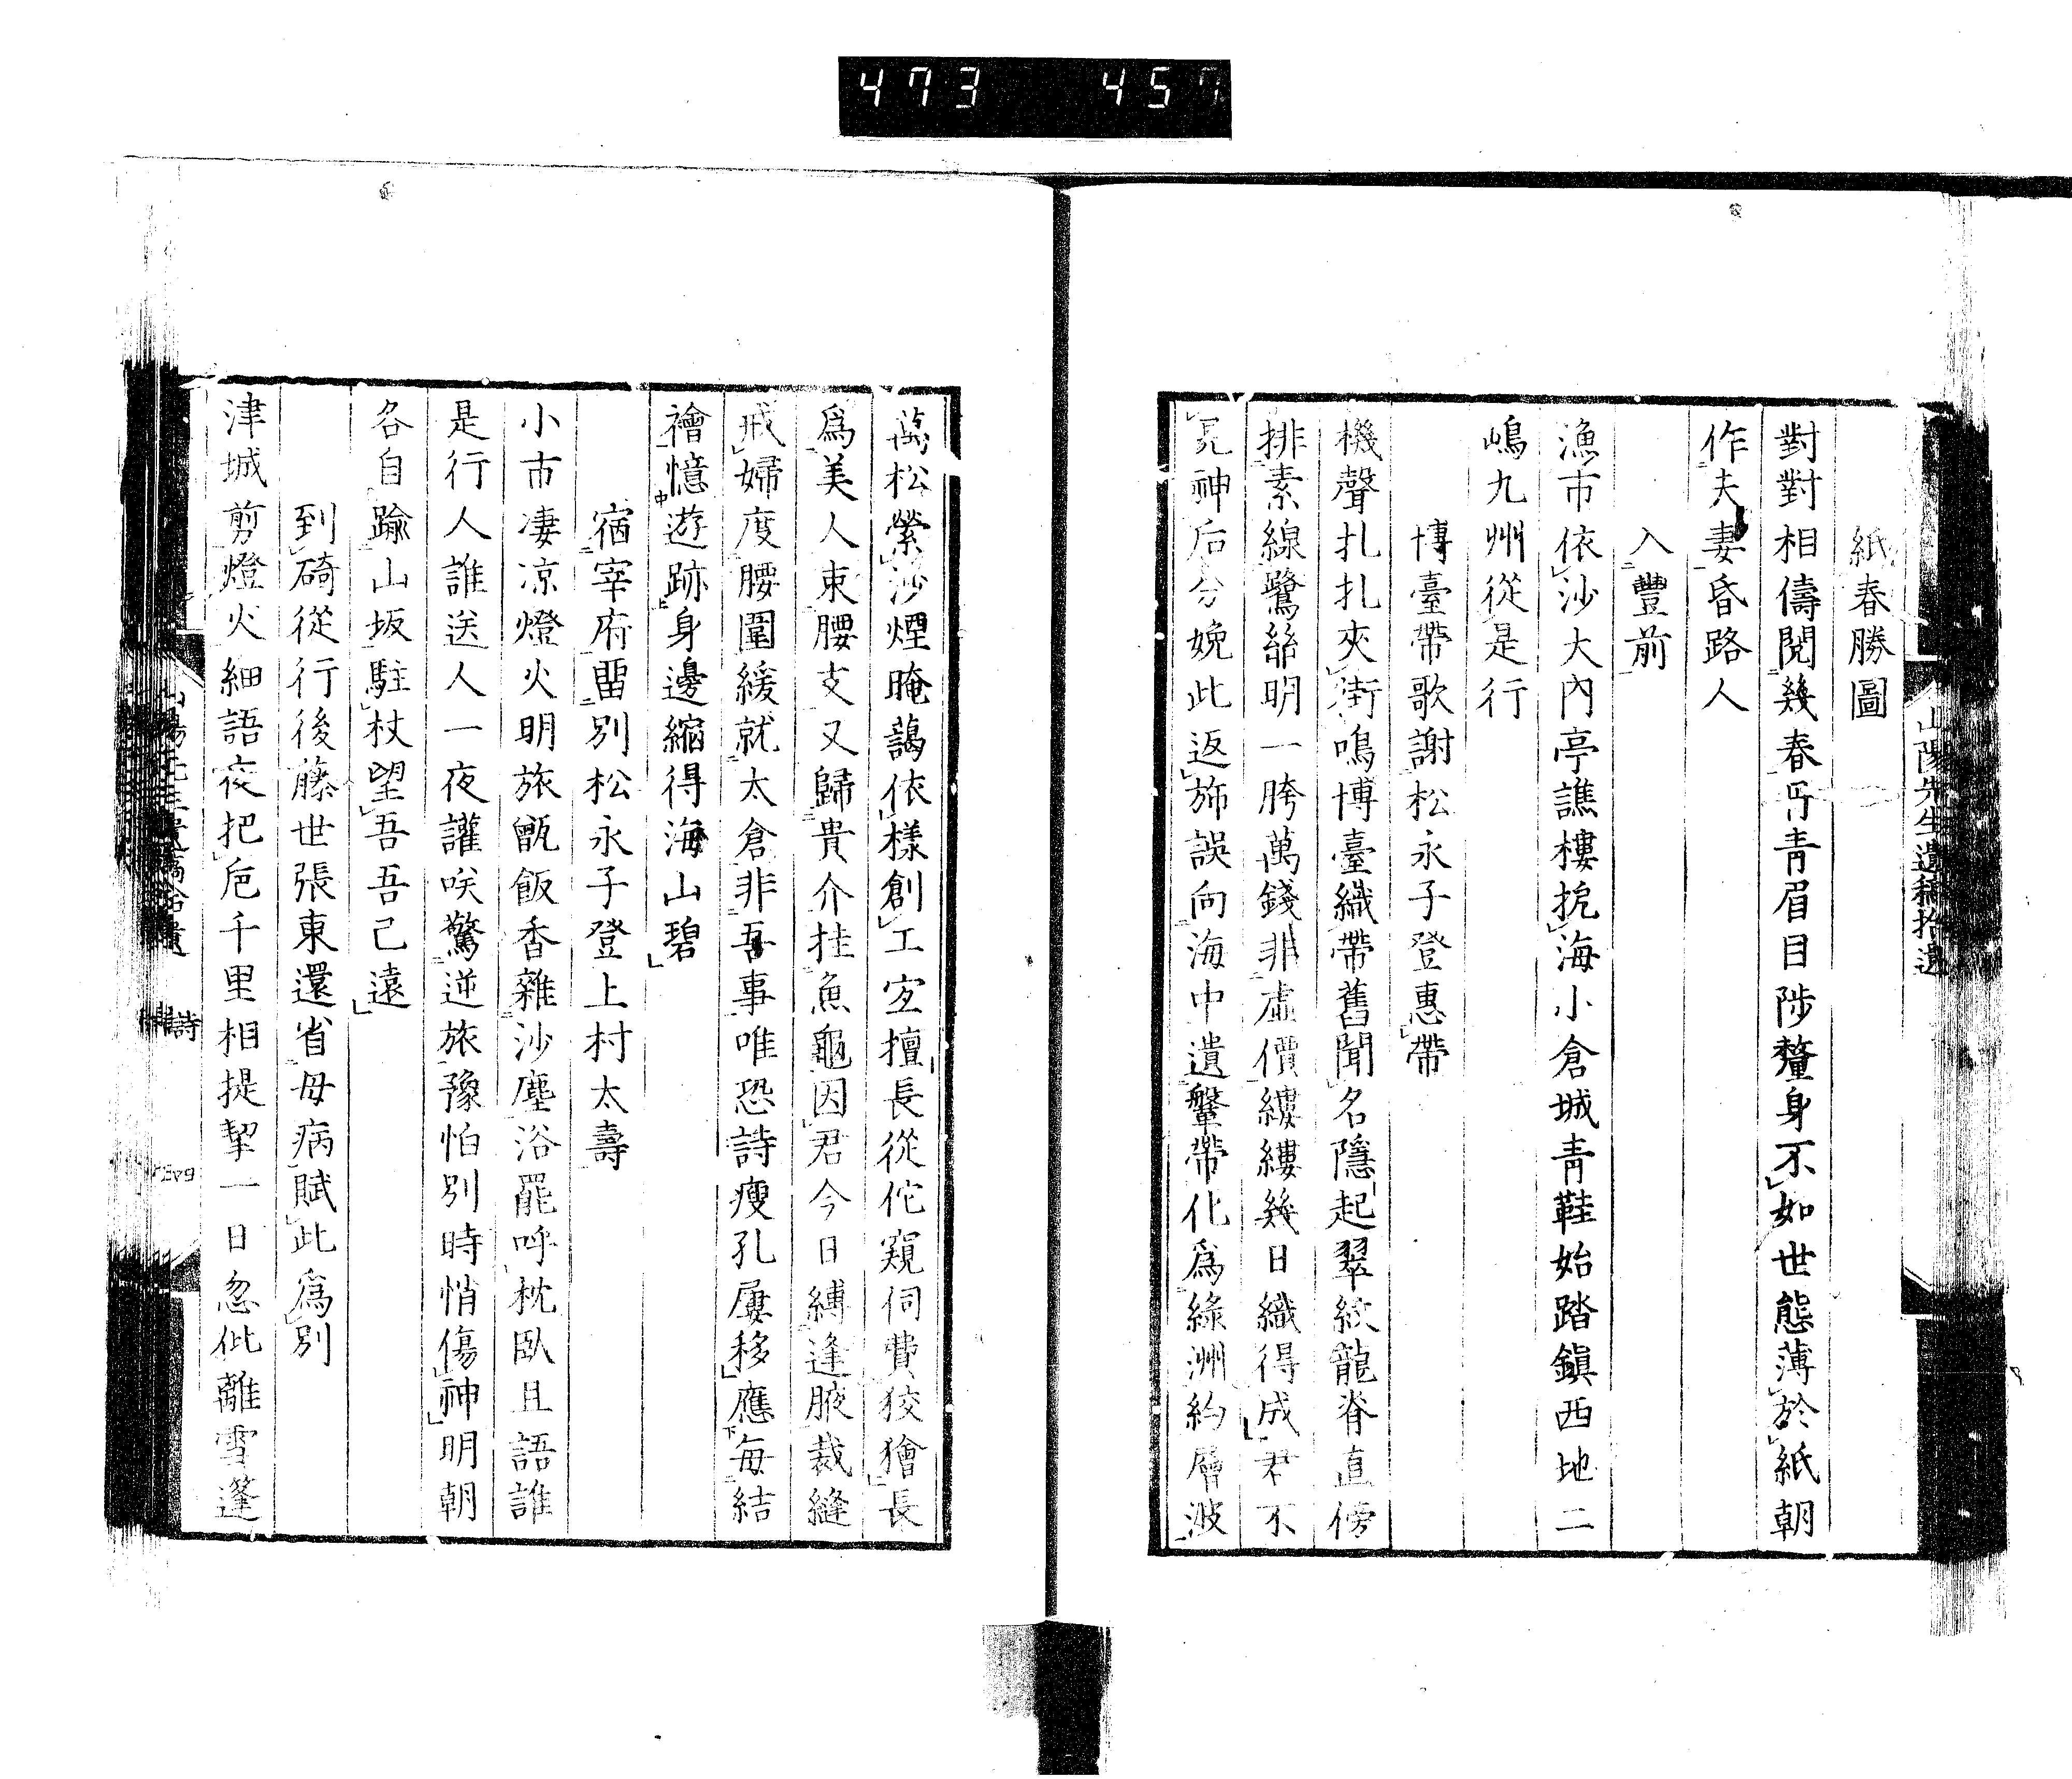 473 457
山陽先生遺稿拾遺
紙春勝圖
對對相儔閱幾春丹青眉目陟釐身不如世態薄於紙朝
作夫妻昏路人
入豐前
漁市依沙大內亭譙樓挽海小倉城青鞋始踏鎭西地二
嶋九州從是行
博臺帶歌謝松永子登惠帶
機聲扎扎夾街鳴博臺織帶舊聞名隱起翠紋龍脊直傍
排素線鷺絲明一胯萬錢非虛價縷縷幾日織得成君不
見神后分娩此返旆誤向海中遺鞶帶化爲綠洲約層波
萬松縈沙煙晻藹依樣創工宏擅長從佗窺伺費狡獪長
爲美人束腰支又歸貴介挂魚龜因君今日縛逢腋裁縫
戒婦度腰圍緩就太倉非吾事唯恐詩瘦孔屢移應每結
襘憶遊跡身邊縮得海山碧
宿宰府留別松永子登上村太壽
小市凄凉燈火明旅甑飯香雜沙塵浴罷呼枕臥且語誰
是行人誰送人一夜讙咲驚逆旅豫怕別時悄傷神明朝
各自踰山坂駐杖望吾吾已遠
到碕從行後藤世張東還省母病賦此爲別
津城剪燈火細語夜把巵千里相提挈一日忽仳離雪篷
山陽先生遺稿拾遺 詩